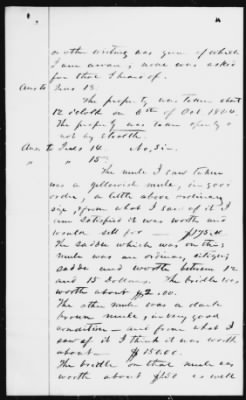 or other writing was given of which
I am aware, none was asked
for that I know of.
Ans to Ques 13.
The property was taken about
12 o'clock on 6th of Oct 1864.
The property was taken openly &
not by stealth.
Ans to Ques 14. No, Sir.
" " 15
The mule I saw taken
was a yellowish mule, in good
order, a little above ordinary
size, from what I saw of it I
am satisfied it was worth and
would sell for — $175.00.
The saddle which was on this
mule was an ordinary, citizens
saddle and worth between 12
and 15 Dollars. The bridle was
worth about $2.00.
The other mule was a dark
brown mule, in very good
condition — and from what I
saw of it I think it was worth
about — $150.00.
The bridle on that mule was
worth about $1.50 as well